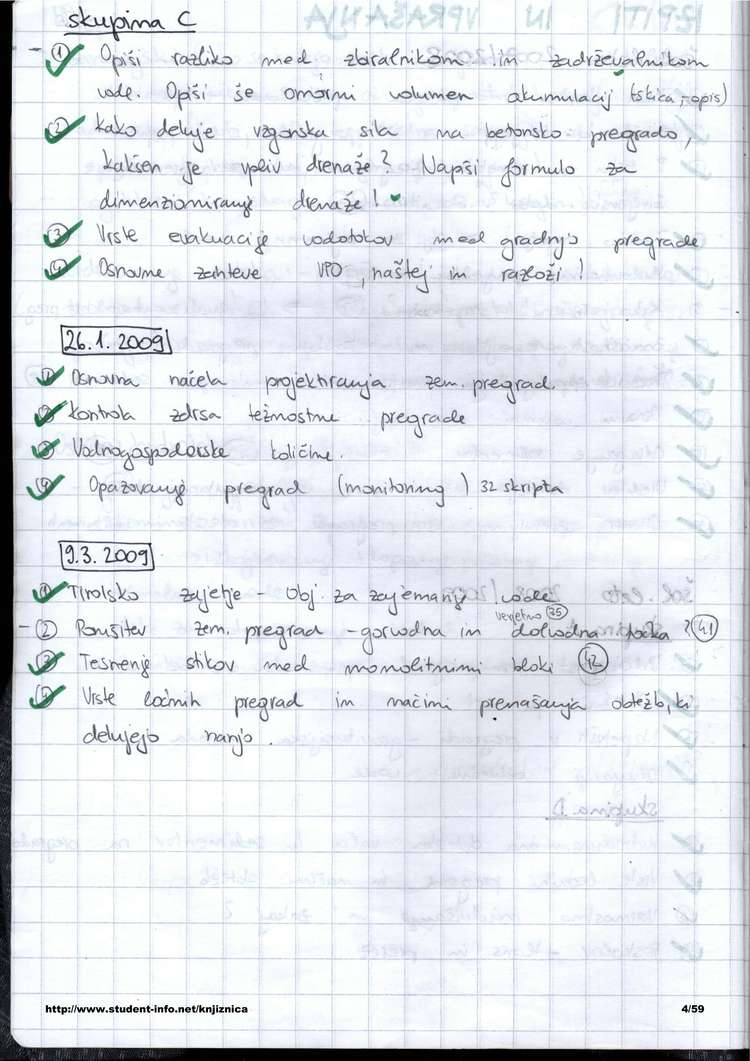 skupina C
- ① Opiši razliko med zbiralnikom in zadrževalnikom
vode. Opiši še omrtni volumen akumulacij (skica, opis)
② Kako deluje vzgonska sila na betonsko pregrado,
kakšen je vpliv drenaže? Napiši formulo za
dimenzioniranje drenaže!
③ Vrste evakuacije vodotokov med gradnjo pregrade
④ Osnovne zahteve VPO, naštej in razloži!
26.1.2009
① Osnovna načela projektiranja zem. pregrad.
② Kontrola zdrsa težnostne pregrade
③ Vodnogospodarske količine.
④ Opazovanje pregrad (monitoring) 32 skripta
9.3.2009
① Tirolsko zajetje - obj. za zajemanje vode
verjetno 35
- ② Porušitev zem. pregrad - gorvodna in dolvodna ? 41
③ Tesnenje stikov med monolitnimi bloki 42
④ Vrste ločnih pregrad in načini prenašanja obtežb, ki
delujejo nanjo.
http://www.student-info.net/knjiznica
4/59